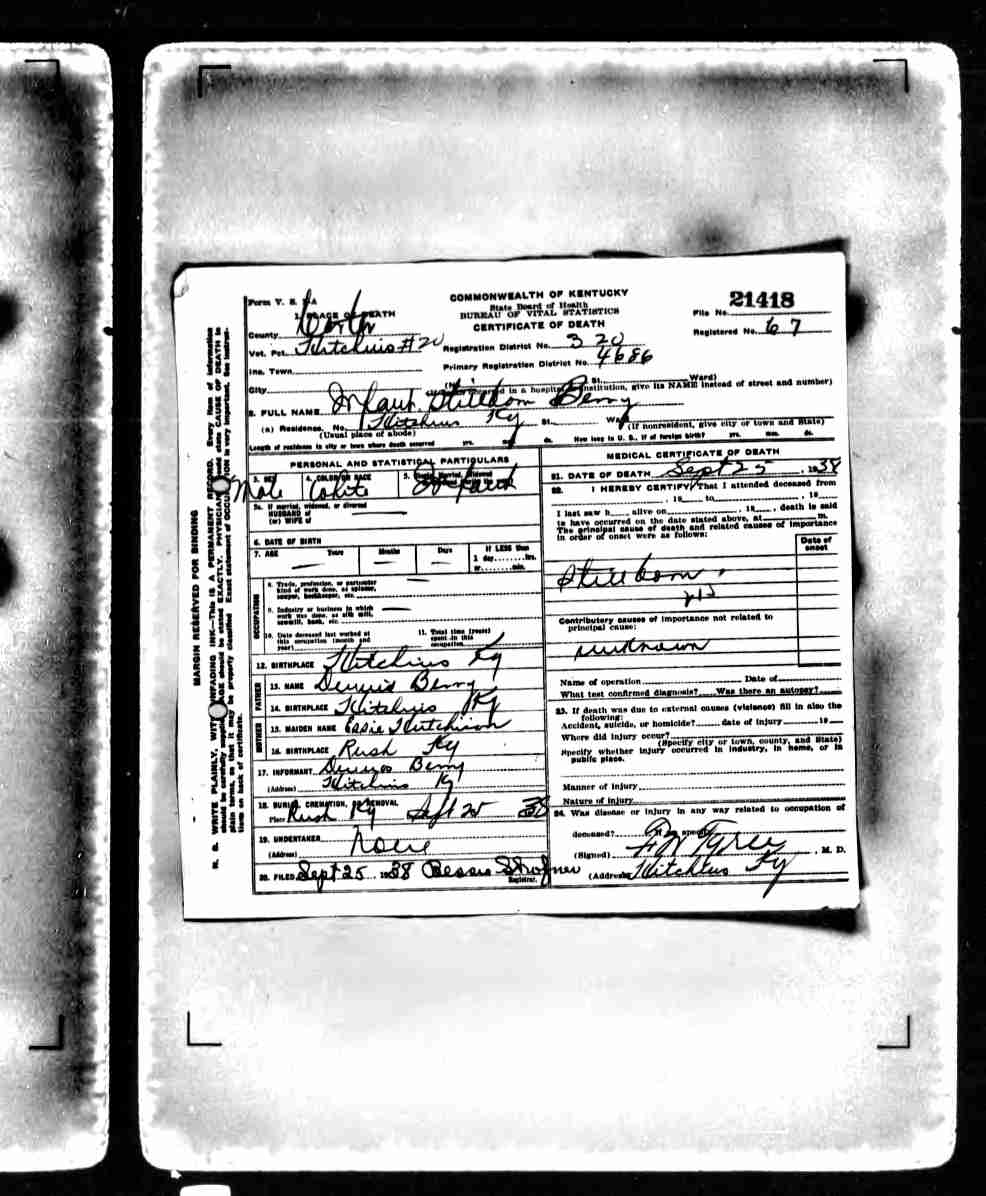 Form V. S. 1A
COMMONWEALTH OF KENTUCKY
State Board of Health
BUREAU OF VITAL STATISTICS
CERTIFICATE OF DEATH
File No. 21418
Registered No. 67
1. PLACE OF DEATH
County Carter
Vot. Pct. Hitchins #20
Registration District No. 320
Inc. Town
Primary Registration District No. 4686
City (No. St. Ward)
give its NAME instead of street and number)
2. FULL NAME Infant Stillborn Berry
(a) Residence. No. Hitchins Ky St. Ward
(Usual place of abode) (If nonresident, give city or town and State)
Length of residence in city or town where death occurred yrs. mos. ds. How long in U. S., if of foreign birth? yrs. mos. ds.
PERSONAL AND STATISTICAL PARTICULARS
3. SEX Male
4. COLOR OR RACE White
5. Single, Married, Widowed Infant
5a. If married, widowed, or divorced
HUSBAND of
(or) WIFE of
6. DATE OF BIRTH
7. AGE Years Months Days If LESS than
1 day hrs.
or min.
OCCUPATION
8. Trade, profession, or particular
kind of work done, as spinner,
sawyer, bookkeeper, etc.
9. Industry or business in which
work was done, as silk mill,
sawmill, bank, etc.
10. Date deceased last worked at
this occupation (month and
year)
11. Total time (years)
spent in this
occupation
12. BIRTHPLACE Hitchins Ky
FATHER
13. NAME Dennis Berry
14. BIRTHPLACE Hitchins Ky
MOTHER
15. MAIDEN NAME Essie Hutchison
16. BIRTHPLACE Rush Ky
17. INFORMANT Dennis Berry
(Address) Hitchins Ky
18. BURIAL, CREMATION, OR REMOVAL
Place Rush Ky Sept 25 38
19. UNDERTAKER None
(Address)
20. FILED Sept 25 1938 Bessie
Registrar.
MEDICAL CERTIFICATE OF DEATH
21. DATE OF DEATH Sept 25, 1938
22. I HEREBY CERTIFY, That I attended deceased from
, 19 to , 19
I last saw h alive on , 19 , death is said
to have occurred on the date stated above, at m.
The principal cause of death and related causes of importance
in order of onset were as follows:
Date of
onset
Stillborn
Contributory causes of importance not related to
principal cause:
unknown
Name of operation Date of
What test confirmed diagnosis? Was there an autopsy?
23. If death was due to external causes (violence) fill in also the
following:
Accident, suicide, or homicide? date of injury 19
Where did injury occur?
(Specify city or town, county, and State)
Specify whether injury occurred in industry, in home, or in
public place.
Manner of injury
Nature of injury
24. Was disease or injury in any way related to occupation of
deceased? If so, specify
(Signed) Tyree, M. D.
(Address) Hitchins Ky
MARGIN RESERVED FOR BINDING